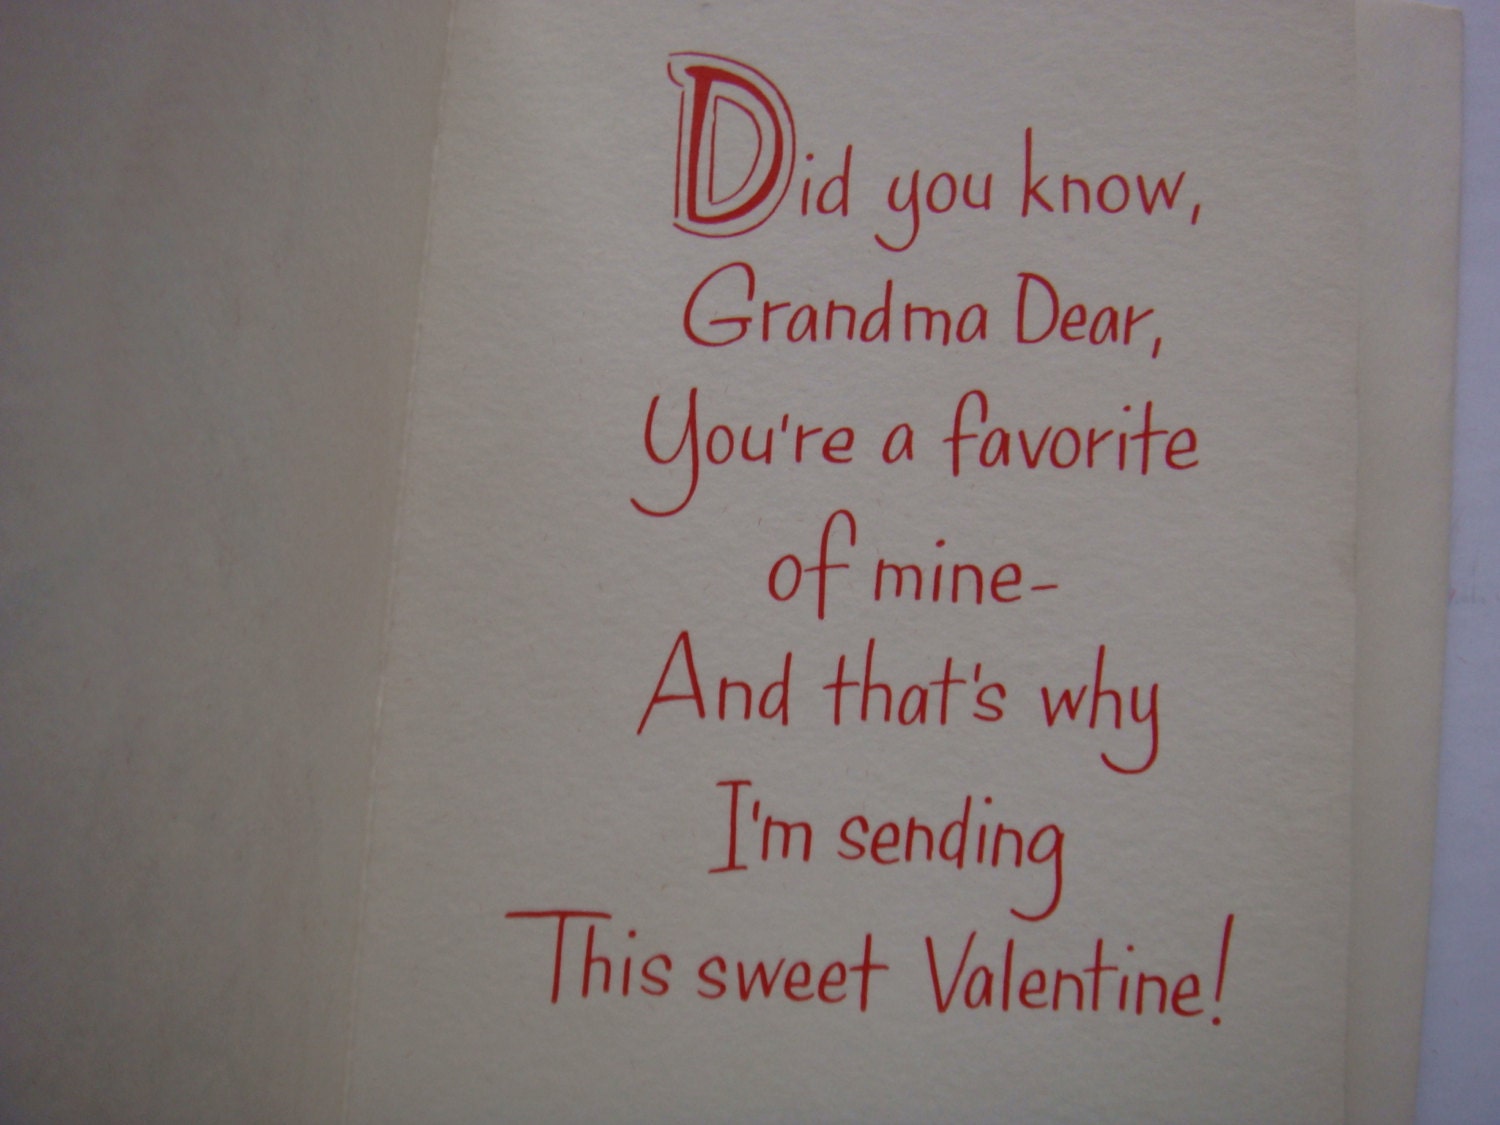 Did you know,
Grandma Dear,
You're a favorite
of mine-
And that's why
I'm sending
This sweet Valentine!